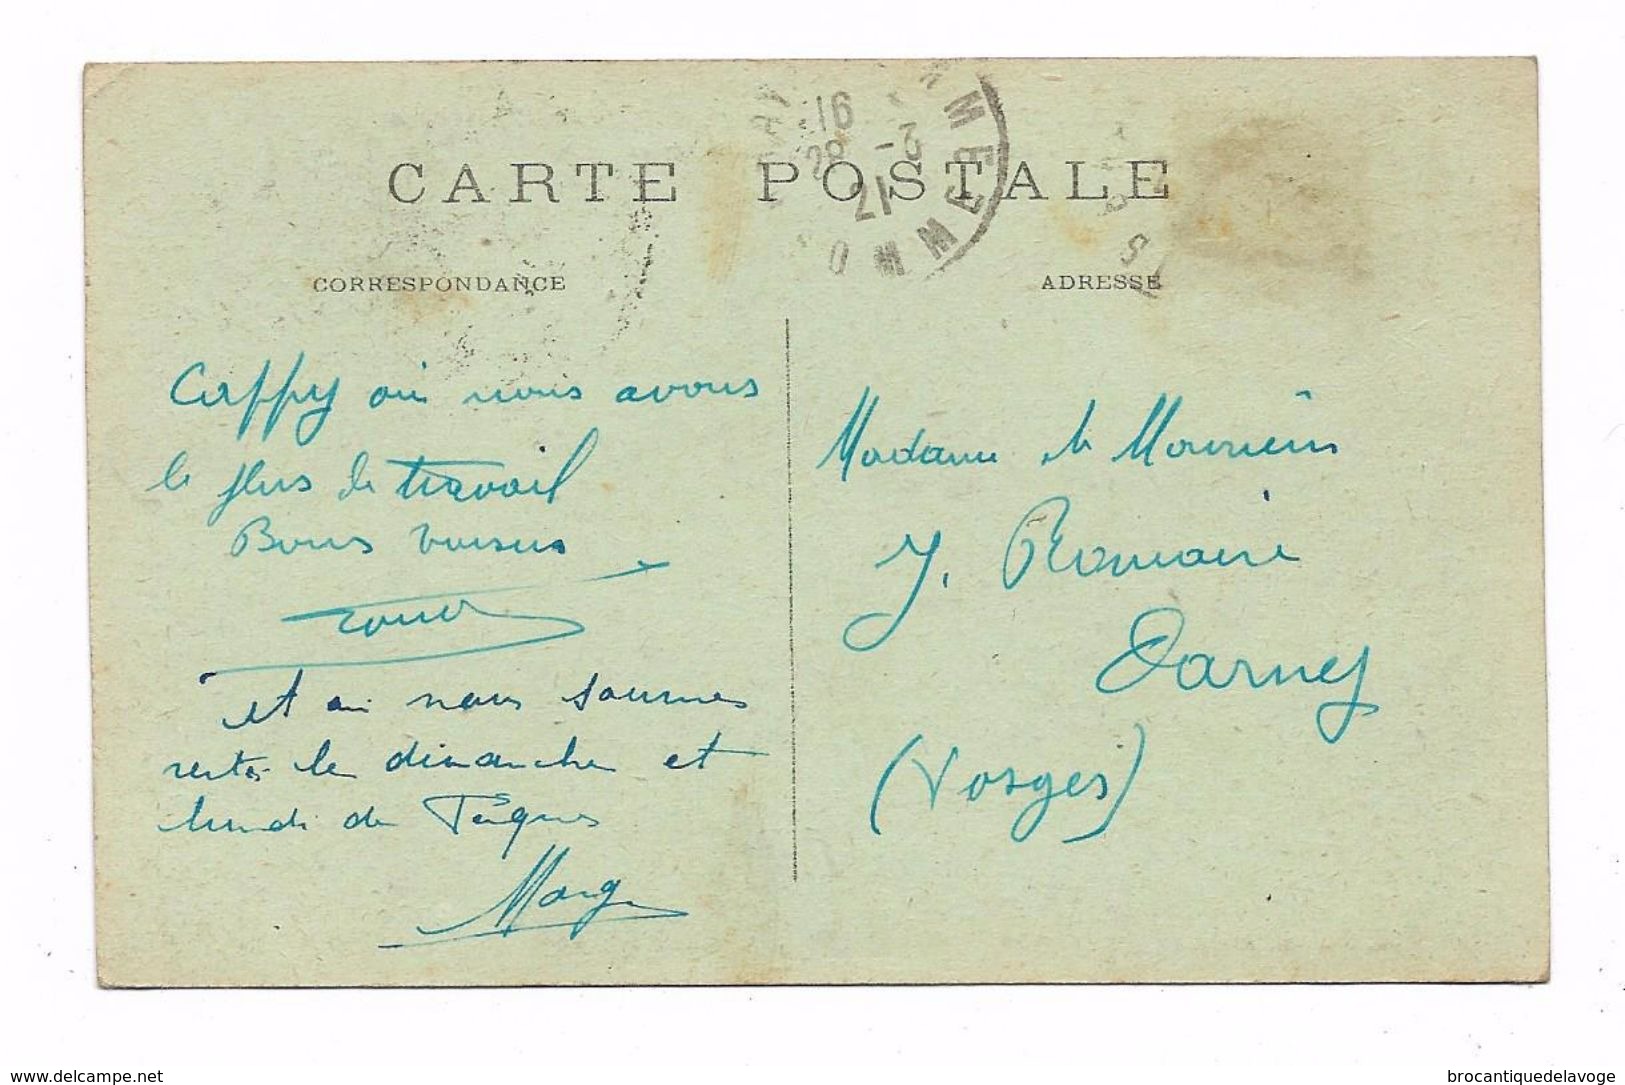 CARTE POSTALE
CORRESPONDANCE
ADRESSE
Cappy où nous avons
le plus de travail
Bons baisers
et où nous sommes
restés le dimanche et
lundi de Pâques
Marg
Madame de
J. Romain
Darney
(Vosges)
16
28 -2
17
delcampe.net
brocantiquedelavoge